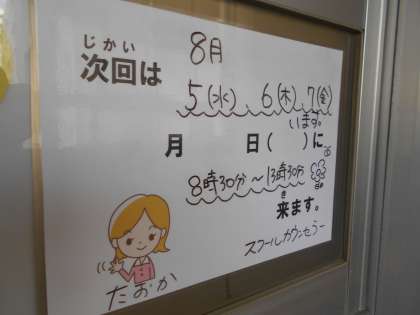 8月
じかい
次回は
5(水)、6(木)、7(金)
います。
月 日( )に
8時30分～13時30分
き
来ます。
スクールカウンセラー
たおか